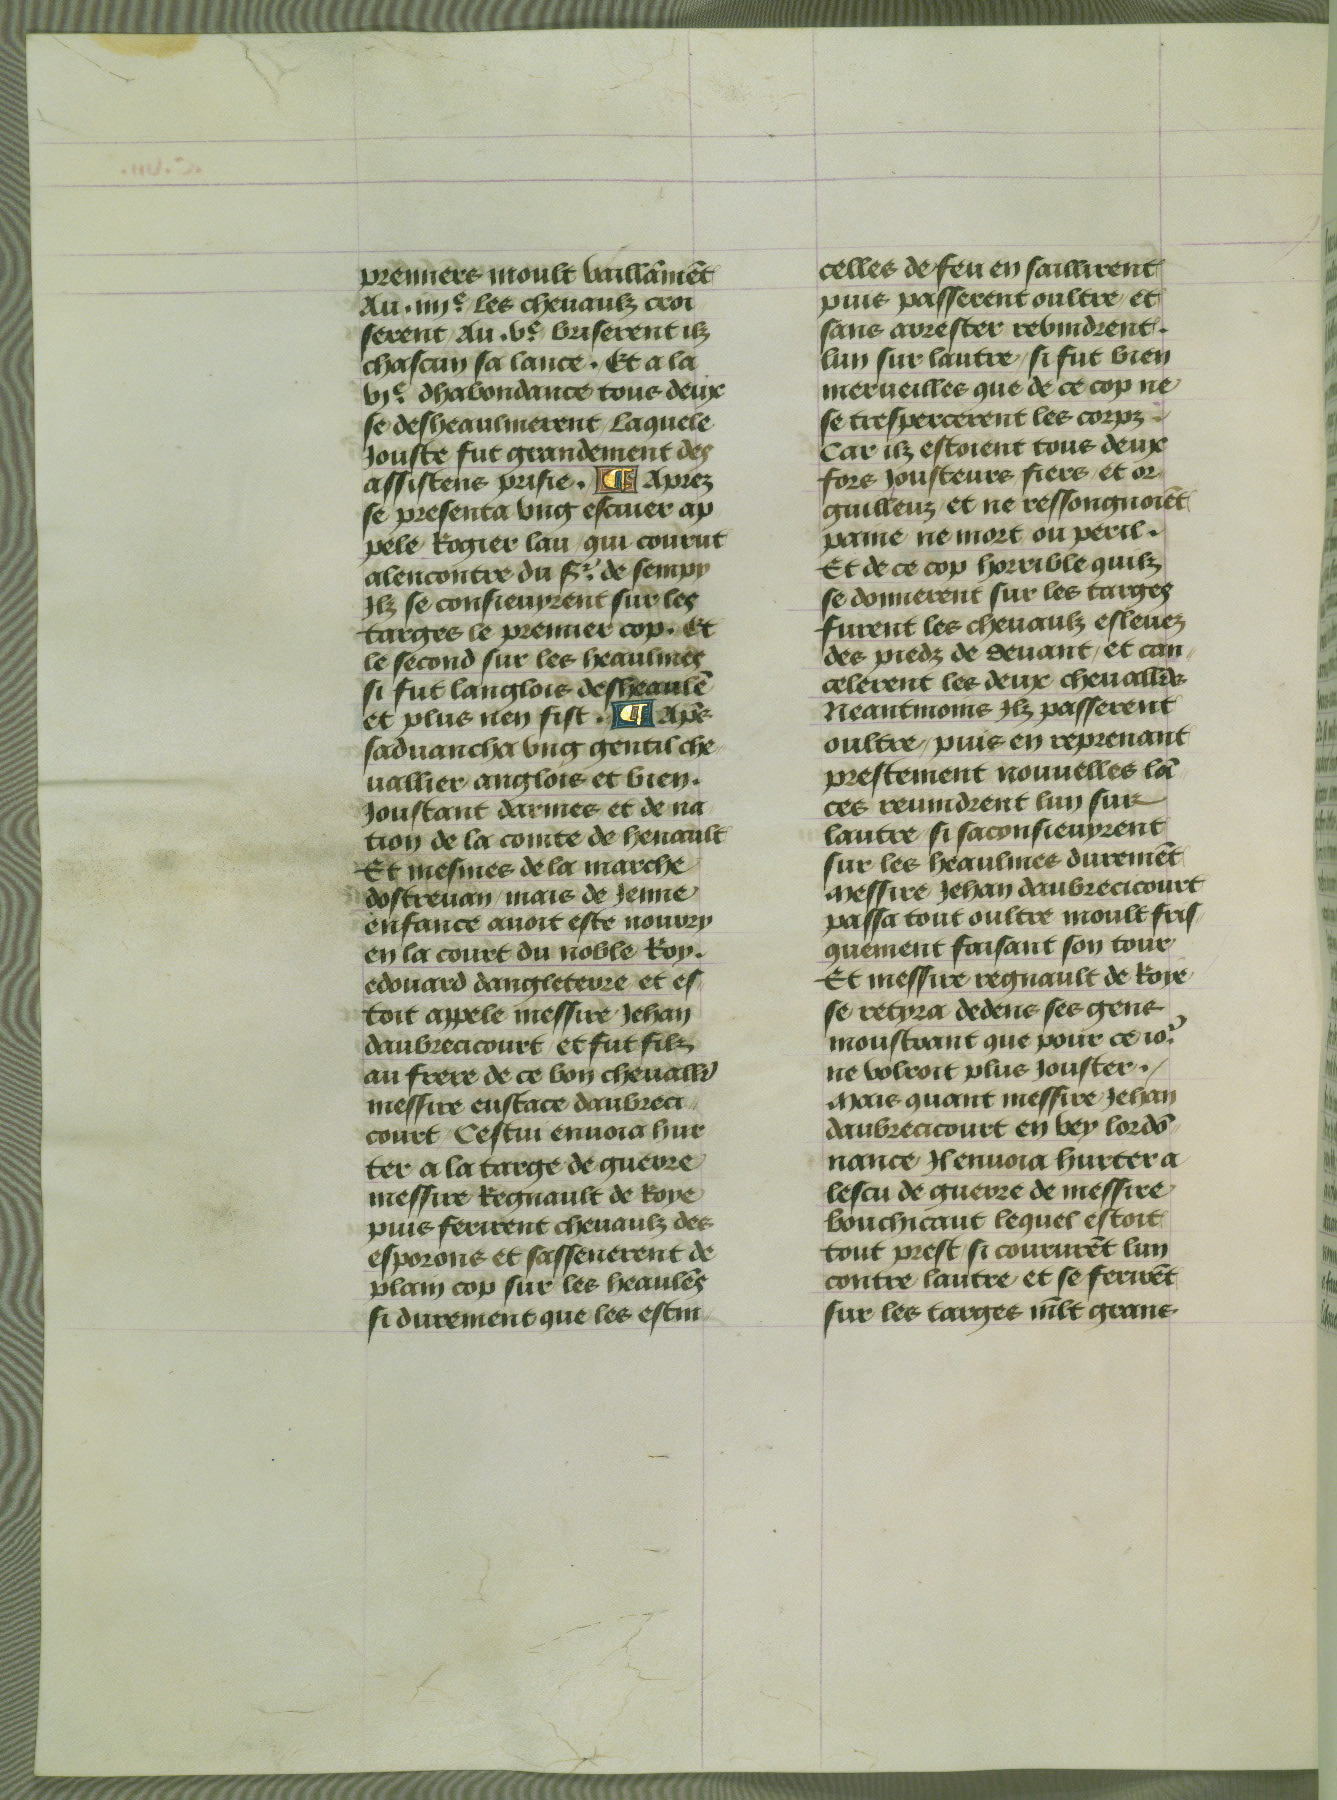 premiers moult vaillāmēt
Au .iiijᵉ. les cheuaulz croi
serent Au .vᵉ. briserent ilz
chascun sa lance. Et a la
vjᵉ. dhabondance tous deux
se desheaulmerent Laquele
Jouste fut grandement des
assistens prisie. ¶ Aprez
se presenta vng escuier ap
pele Rogier lau qui courut
alencontre du Sʳ. de sempy
Jlz se consieuyrent sur les
targes le premier cop. Et
le second sur les heaulmes
si fut langlois desheaulē
et plus nen fist. ¶ Apēs
saduancha vng gentil che
uallier anglois et bien.
Joustant darmes et de na
tion de la comte de henault
Et mesmes de la marche
dostreuan / mais de Jenne
enfance auoit este nourry
en la court du noble Roy.
edouard dangleterre et es
toit appele messire Jehan
daubrecicourt / et fut filz
au frere de ce bon cheuallr̄
messire eustace daubreci
court / Cestui enuoia hur
ter a la targe de guerre
messire Regnault de Roye
puis ferirent cheuaulz des
esporons et sassenerent de
plain cop sur les heaulēs
si durement que les estin
celles de feu en saillirent
puis passerent oultre / et
sans arrester reuindrent.
lun sur lautre / si fut bien
merueilles que de ce cop ne
se trespercerent les corpz.
Car ilz estoient tous deux
fors Jousteurs fiers et or
guilleuz / et ne ressongnoiēt
paine ne mort ou peril.
Et de ce cop horrible quilz
se donnerent sur les targes
furent les cheuaulz esleuez
des piedz de deuant / et can
celerent les deux cheuallr̄s
Neantmoins Jlz passerent
oultre / puis en reprenant
prestement nouuelles lā
ces reuindrent lun sur
lautre si saconsieuyrent
sur les heaulmes duremēt
Messire Jehan daubrecicourt
passa tout oultre moult fris
quement faisant son tour
Et messire regnault de Roye
se retyra dedens ses gens
moustrant que pour ce ioʳ.
ne volroit plus Jouster. /
Mais quant messire Jehan
daubrecicourt en vey lordō
nance Jl enuoia hurter a
lescu de guerre de messire
bouchicaut lequel estoit
tout prest / si coururēt lun
contre lautre et se ferirēt
sur les targes mlt̄ grans